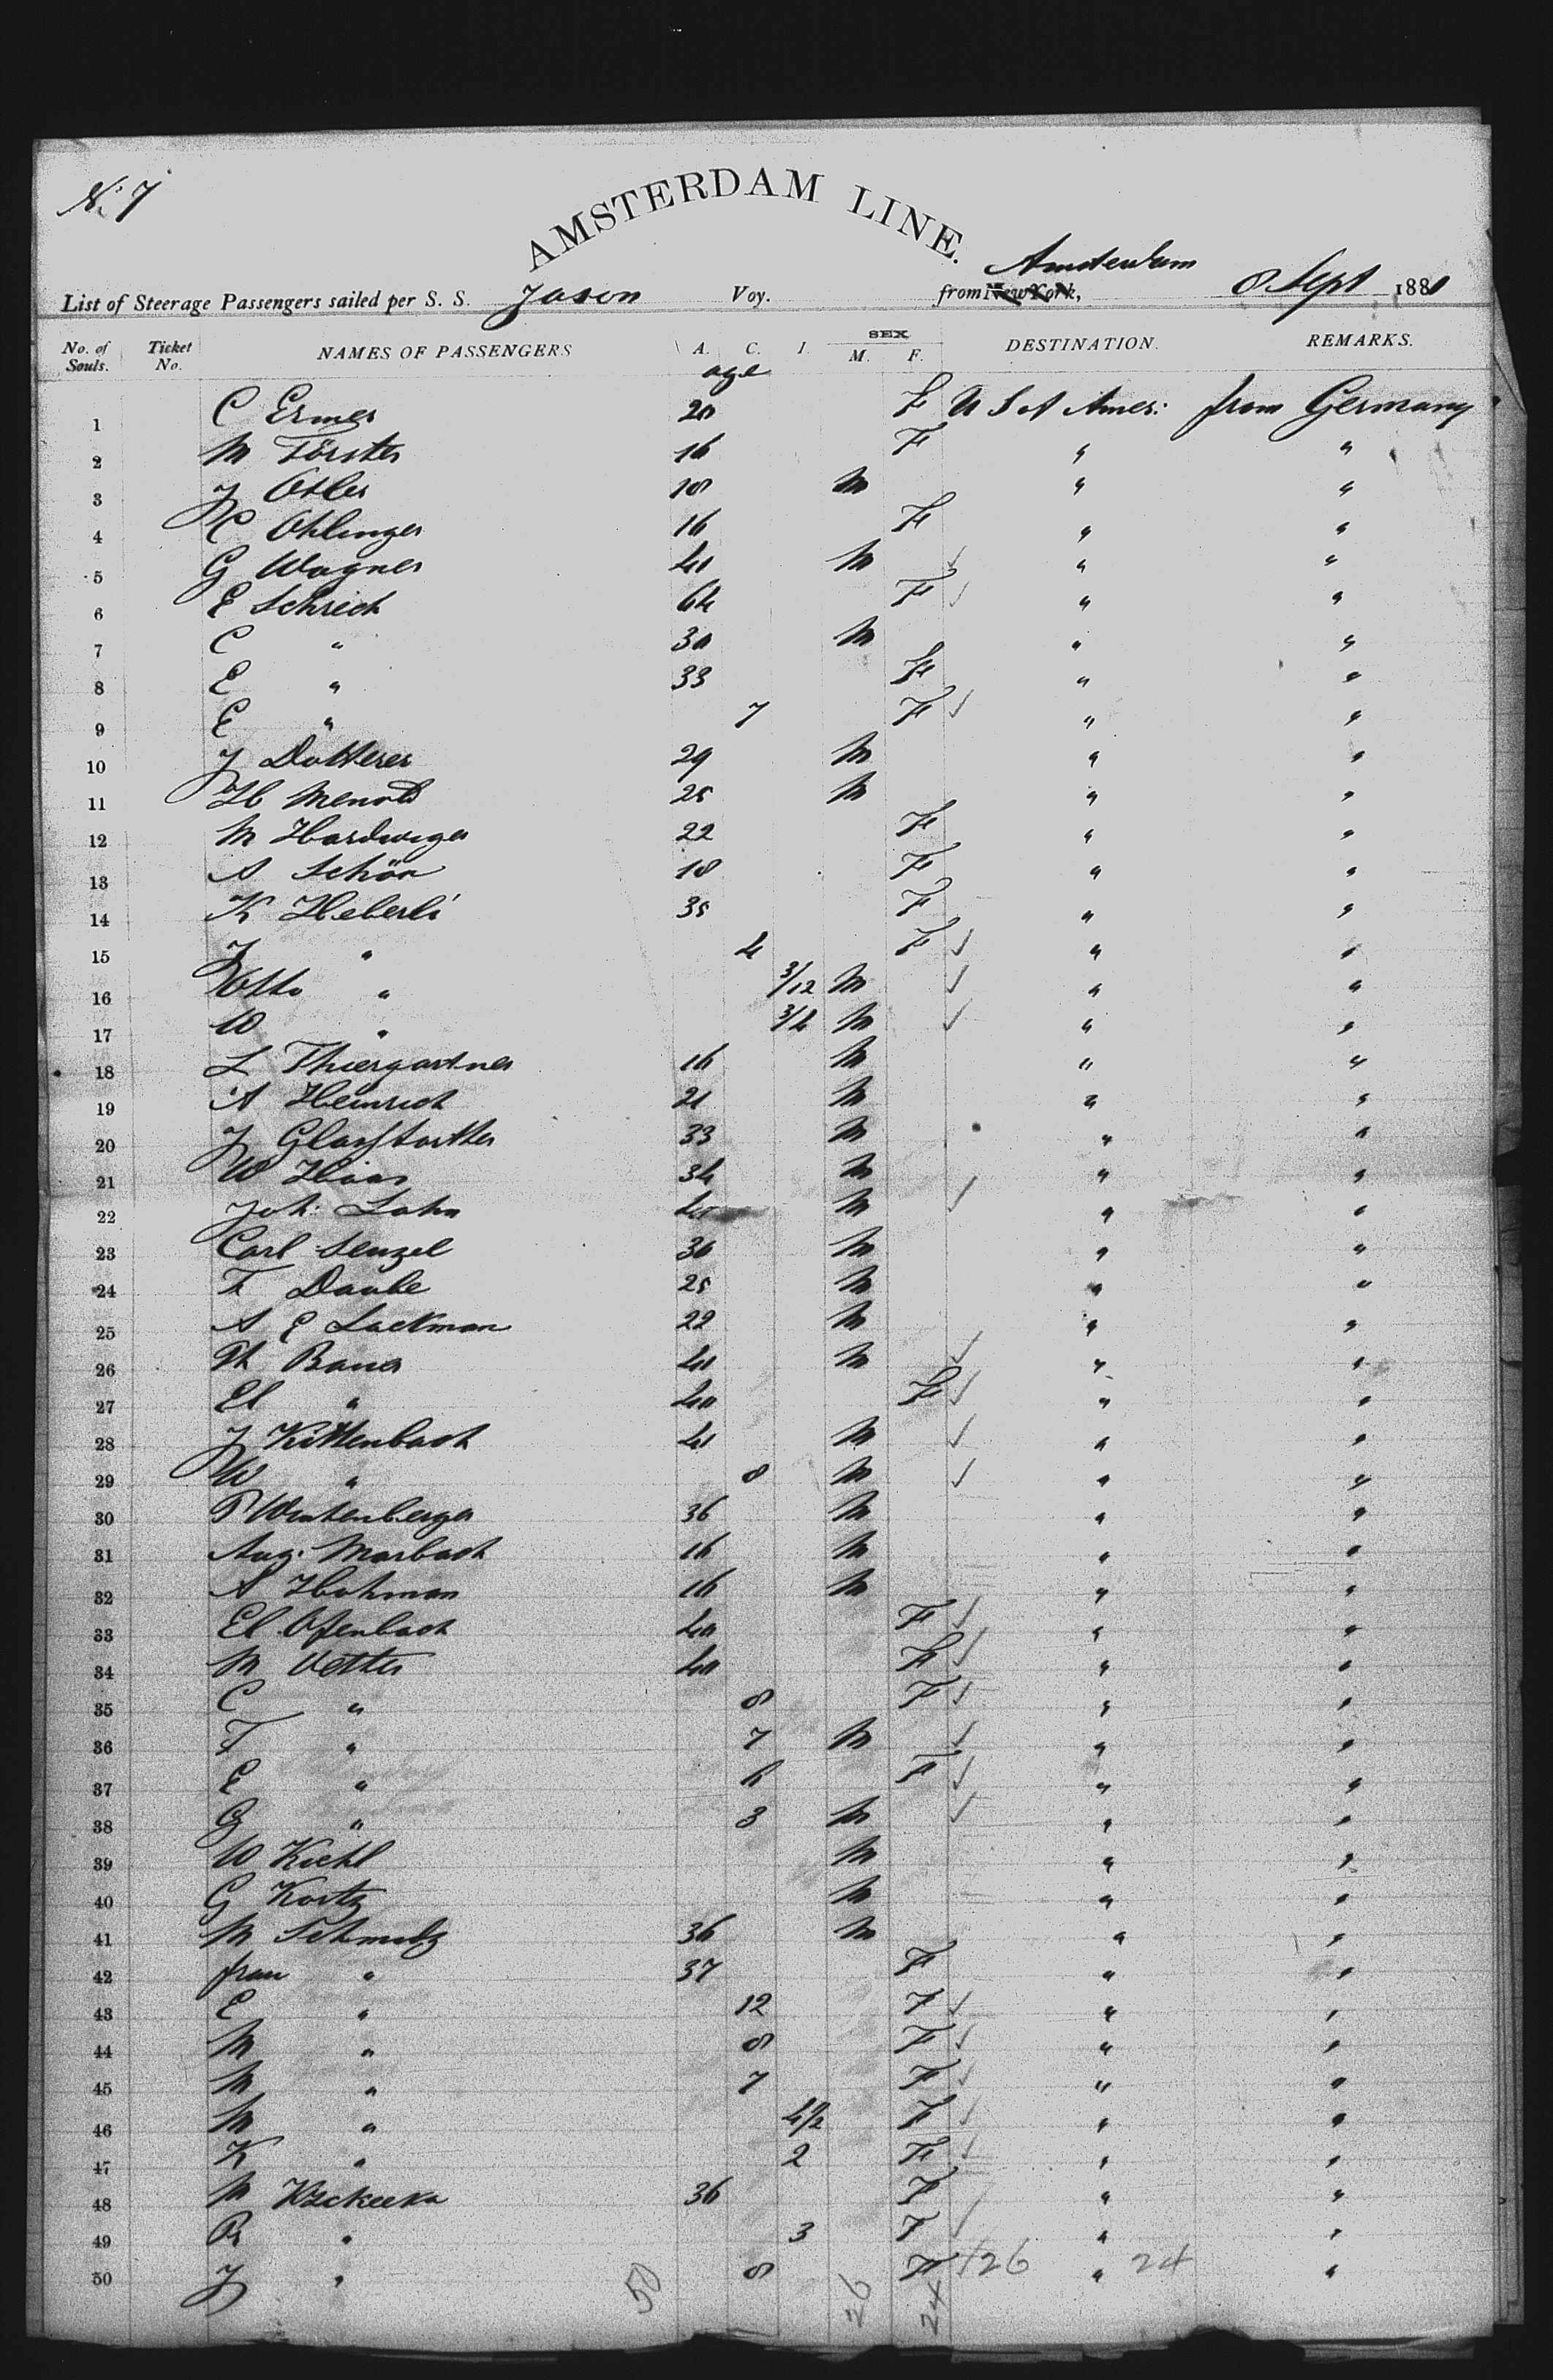 No. 7
AMSTERDAM LINE.
List of Steerage Passengers sailed per S. S. Jason Voy. from New York, Amsterdam 8 Sept 1881
No. of Souls. Ticket No. NAMES OF PASSENGERS A. C. I. SEX M. F. DESTINATION. REMARKS.
age
1 C Ermer 20 F U S A Amer: from Germany
2 M Förster 16 F " "
3 J Osler 18 M " "
4 C Ohlinger 16 F " "
5 G Wagner 41 M ✓ " "
6 E Schrich 64 F ✓ " "
7 C " 30 M " "
8 E " 33 F " "
9 E " 7 F ✓ " "
10 J Dotterer 29 M " "
11 H Menold 25 M " "
12 M Hardwiger 22 F " "
13 A Schön 18 F " "
14 K Heberli 35 F " "
15 J " 4 F ✓ " "
16 Otto " 3/12 M ✓ " "
17 W " 3/4 M ✓ " "
18 L Thiergartner 16 M " "
19 A Heinrich 21 M " "
20 J 33 M " "
21 W Haas 34 M " "
22 Joh: Lahn 40 M ✓ " "
23 Carl Senzel 36 M " "
24 F Daube 25 M " "
25 A E Lackman 22 M " "
26 Th Bauer 41 M ✓ " "
27 El " 40 F ✓ " "
28 J Kittenbach 41 M ✓ " "
29 W " 8 M ✓ " "
30 P Wintenberger 36 M " "
31 Aug: Marbach 16 M " "
32 A Hohman 16 M " "
33 El Ofenbach 40 F ✓ " "
34 M Vetter 40 F ✓ " "
35 C " 8 F ✓ " "
36 F " 7 M ✓ " "
37 E " 6 F ✓ " "
38 G " 3 M ✓ " "
39 W Kiehl M " "
40 G Kortz M " "
41 M Schmelz 36 M " "
42 frau " 37 F " "
43 E " 12 F ✓ " "
44 M " 8 F ✓ " "
45 M " 7 F ✓ " "
46 M " 4 1/2 F ✓ " "
47 K " 2 F ✓ " "
48 M 36 F " "
49 R " 3 F ✓ " "
50 J " 8 F ✓ 26 " 24 "
50 26 24